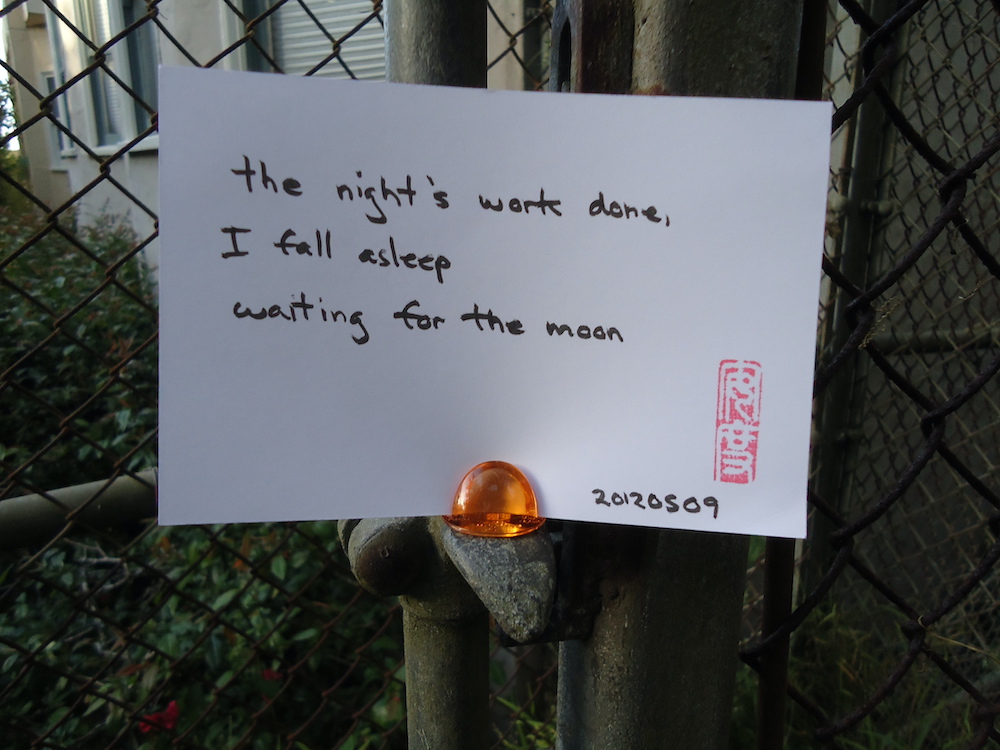 the night's work done,
I fall asleep
waiting for the moon
20120509